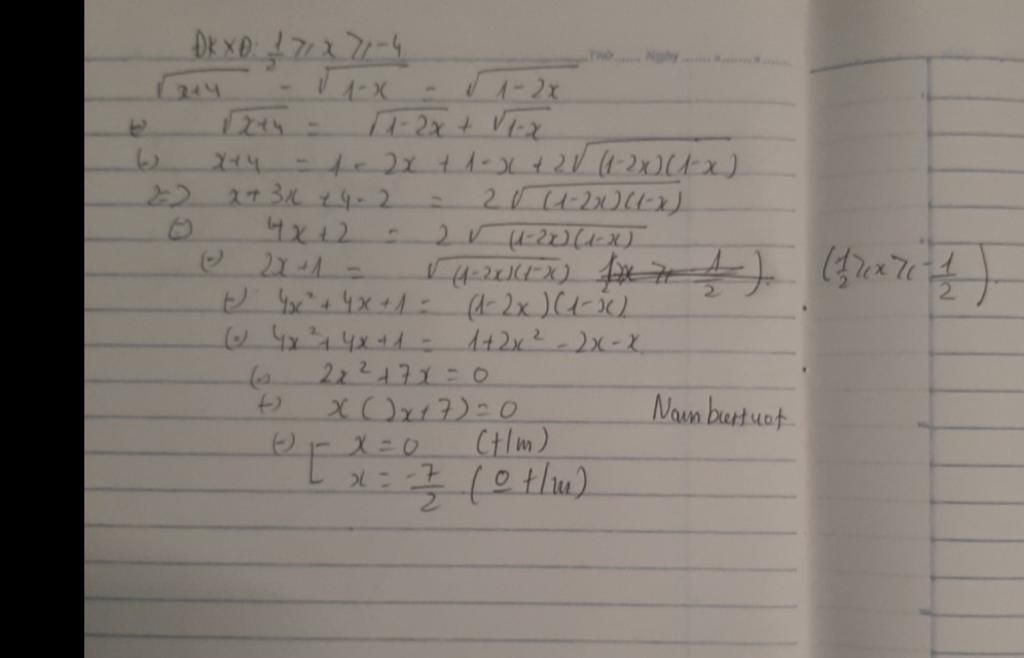 ĐKXĐ: 1/2 ≥ x ≥ -4
Thứ...... Ngày...............
√(x+4) - √(1-x) = √(1-2x)
⇔ √(x+4) = √(1-2x) + √(1-x)
⇔ x+4 = 1-2x+1-x+2√((1-2x)(1-x))
⇔ x+3x+4-2 = 2√((1-2x)(1-x))
⇔ 4x+2 = 2√((1-2x)(1-x))
⇔ 2x+1 = √((1-2x)(1-x)) (1/2 ≥ x ≥ -1/2).
⇔ 4x²+4x+1 = (1-2x)(1-x)
⇔ 4x²+4x+1 = 1+2x²-2x-x
⇔ 2x²+7x=0
⇔ x(2x+7)=0
Nambiettuot
⇔ [ x=0 (t/m)
x = -7/2 (0 t/m)